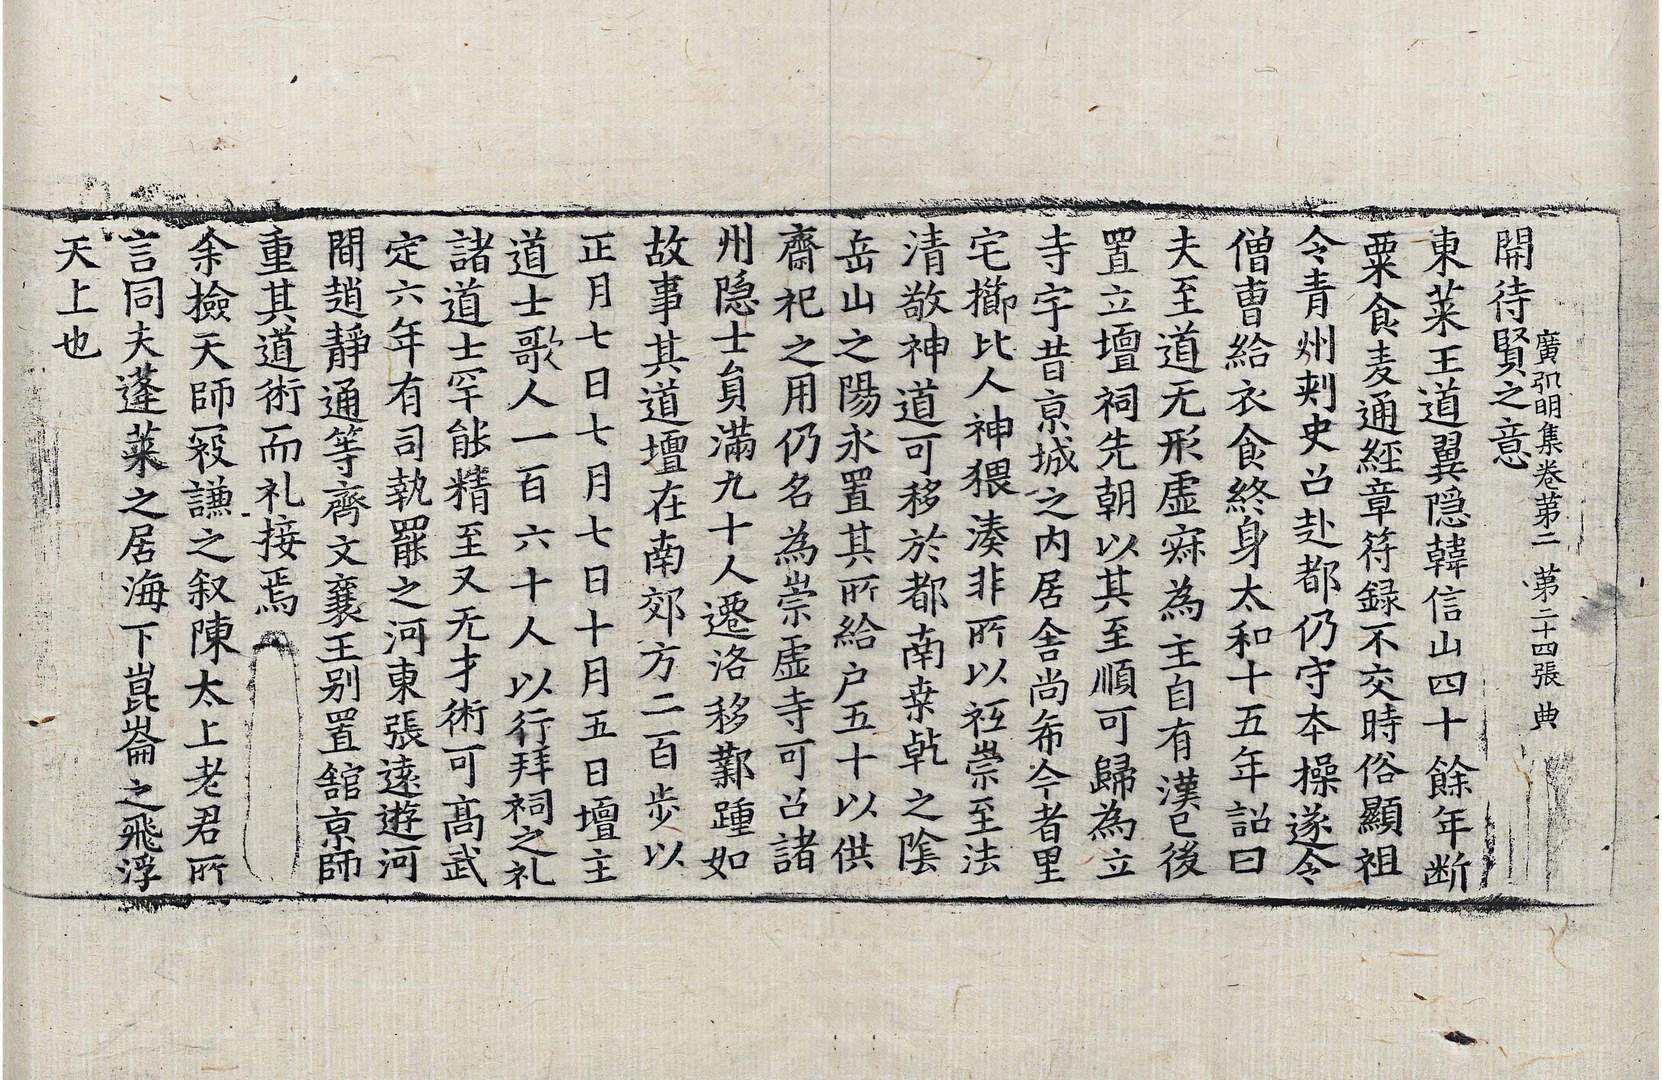 廣弘明集卷第二 第二十四張 典
開待賢之意
東莱王道翼隐韓信山四十餘年断
粟食麦通經章符録不交時俗顯祖
令青州刾史召赴都仍守本操遂令
僧曺給衣食終身太和十五年詔曰
夫至道无形虚寂為主自有漢已後
置立壇祠先朝以其至順可歸為立
寺宇昔京城之内居舎尚希今者里
宅櫛比人神猥湊非所以祇崇至法
清敬神道可移於都南桒乾之陰
岳山之陽永置其所給户五十以供
齋祀之用仍名為崇虚寺可召諸
州隐士貟滿九十人遷洛移鄴踵如
故事其道壇在南郊方二百步以
正月七日七月七日十月五日壇主
道士歌人一百六十人以行拜祠之礼
諸道士罕能精至又无才術可高武
定六年有司執罷之河東張逺遊河
間趙靜通等齊文襄王别置舘京師
重其道術而礼接焉
余撿天師㓂謙之叙陳太上老君所
言同夫蓬莱之居海下崑崙之飛浮
天上也